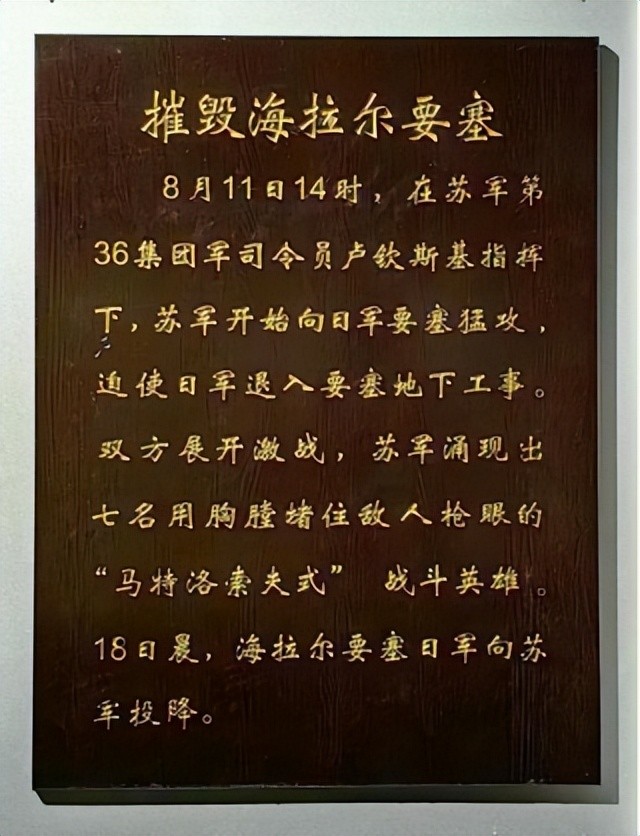 摧毁海拉尔要塞
8月11日14时，在苏军第
36集团军司令员卢钦斯基指挥
下，苏军开始向日军要塞猛攻，
迫使日军退入要塞地下工事。
双方展开激战，苏军涌现出
七名用胸膛堵住敌人枪眼的
“马特洛索夫式” 战斗英雄。
18日晨，海拉尔要塞日军向苏
军投降。